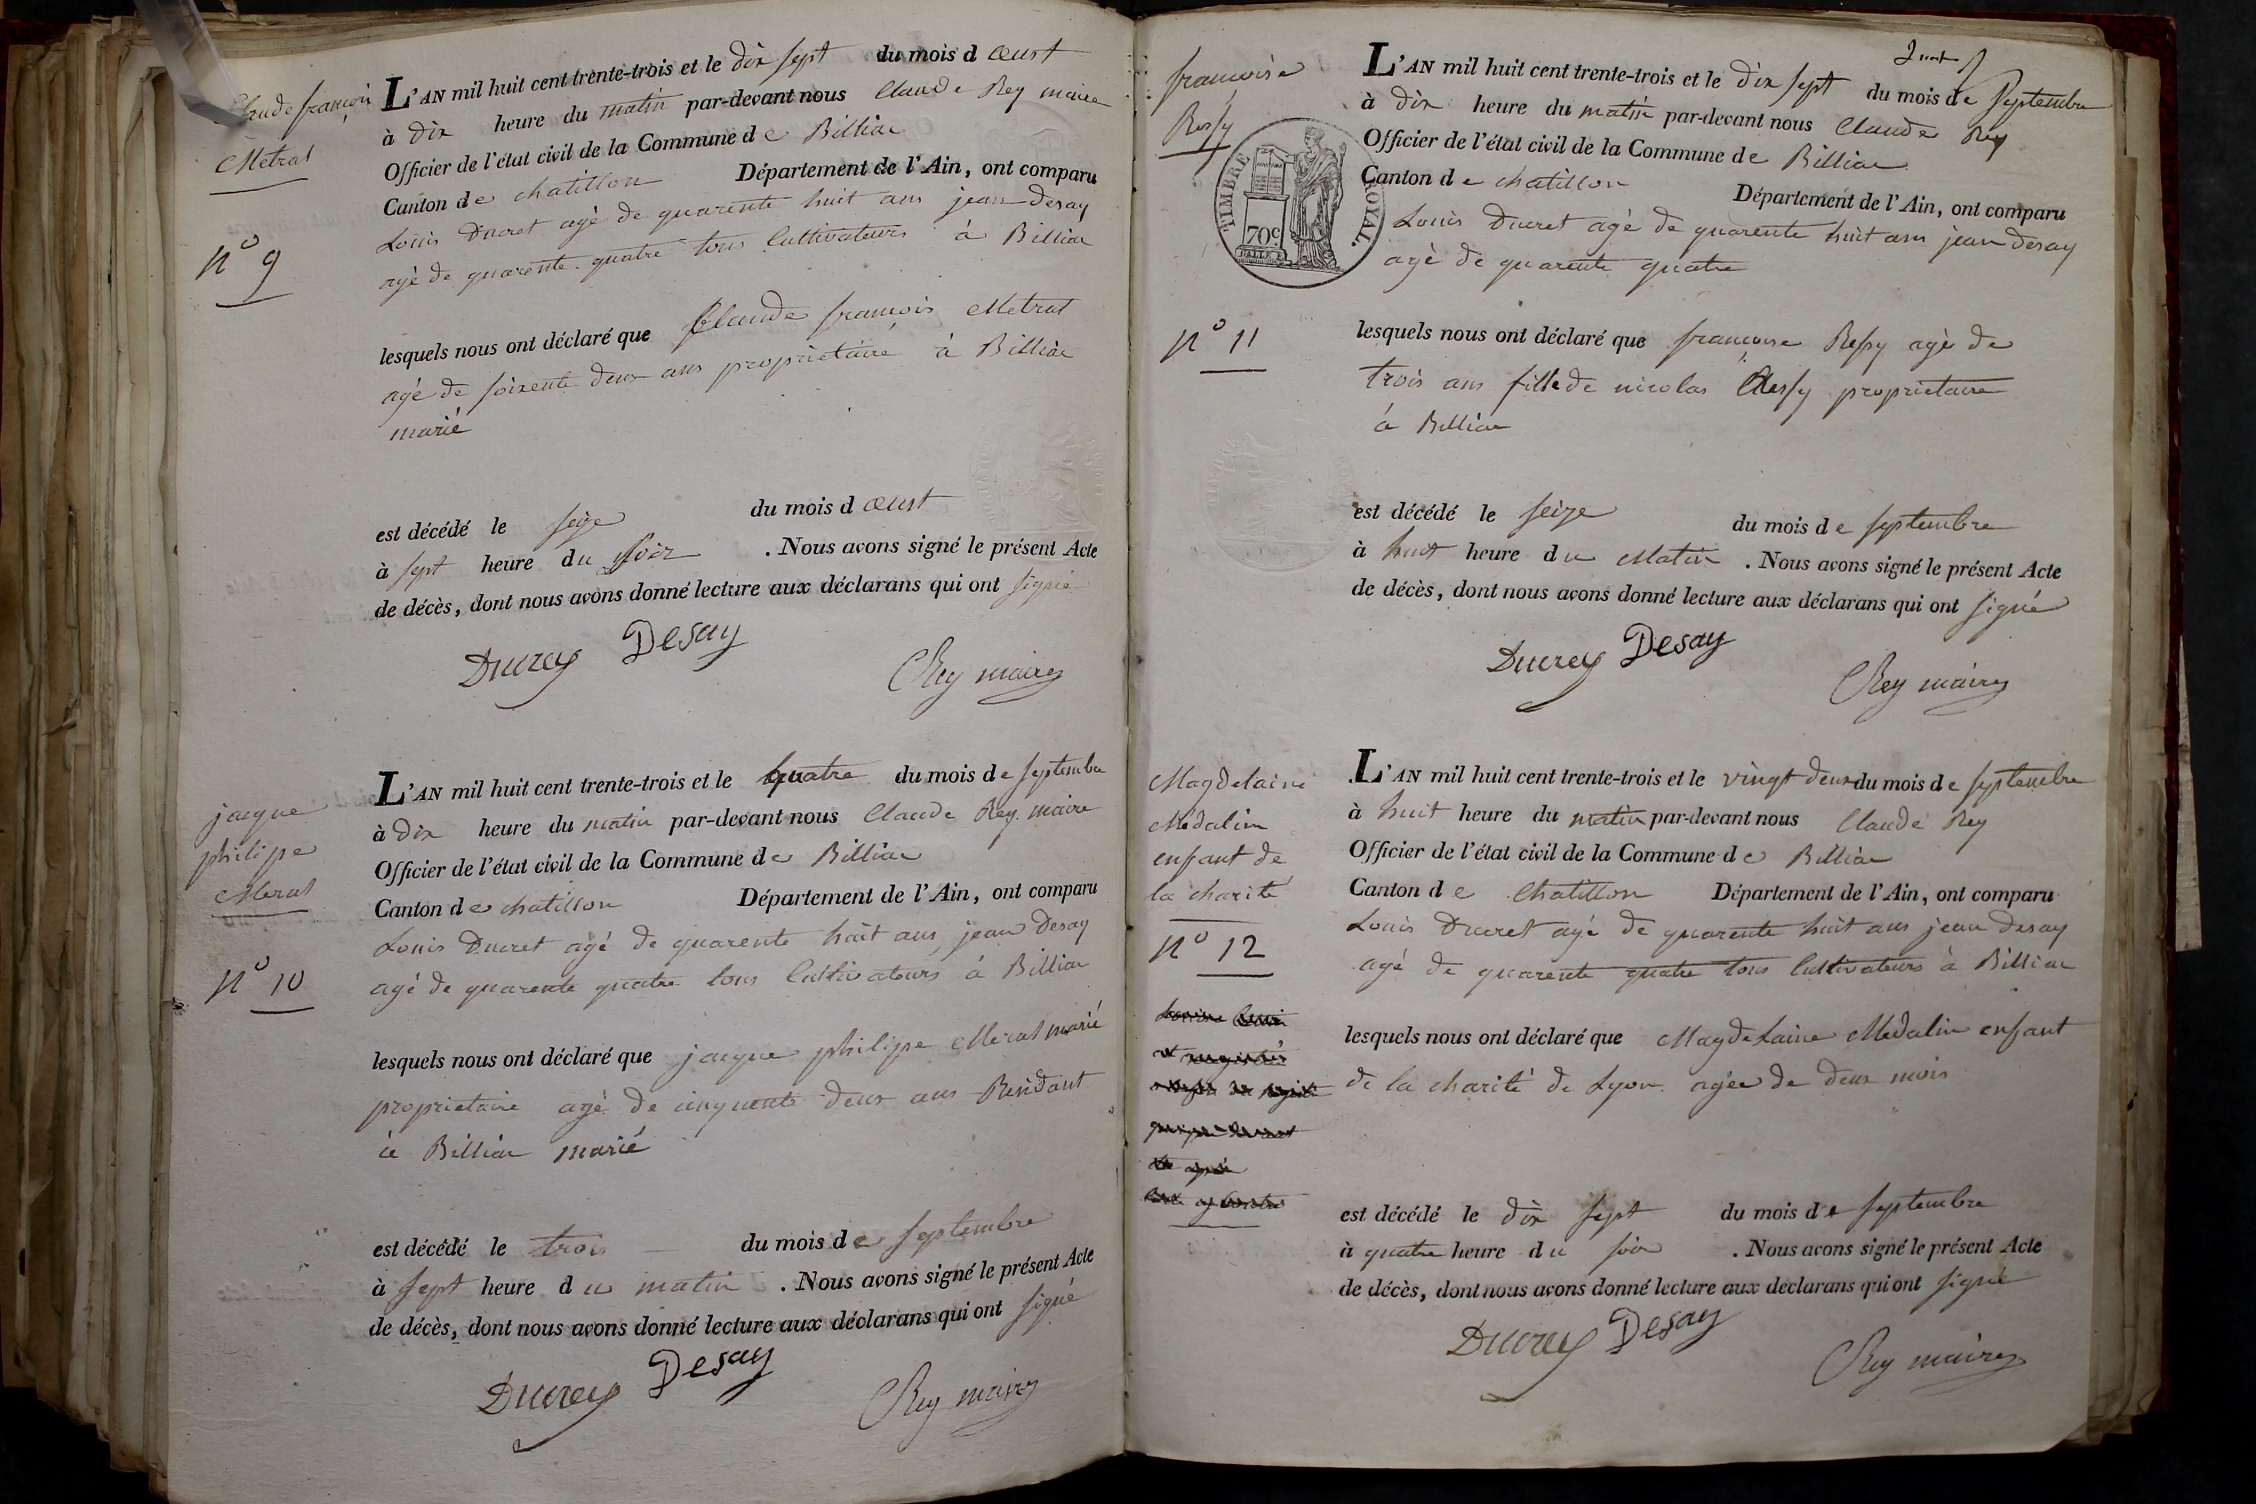 Claude françois
Metral
n° 9
L'AN mil huit cent trente-trois et le dix sept du mois d oeust
à dix heure du matin par-devant nous Claude Rey maire
Officier de l'état civil de la Commune de Billiac
Canton de chatillon Département de l'Ain, ont comparu
Louis Ducret agé de quarente huit ans jean desay
agé de quarente quatre tous Cultivateurs à Billiac
lesquels nous ont déclaré que Claude françois Metral
agé de soixente deux ans proprietaire à Billiac
marié
est décédé le seize du mois d oeust
à sept heure du soir . Nous avons signé le présent Acte
de décès, dont nous avons donné lecture aux déclarans qui ont signé
Ducrey Desay
CRey maire
jacque
philipe
Meral
n° 10
L'AN mil huit cent trente-trois et le quatre du mois de septembre
à dix heure du matin par-devant nous Claude Rey maire
Officier de l'état civil de la Commune de Billiac
Canton de chatillon Département de l'Ain, ont comparu
Louis Ducret agé de quarente huit ans jean desay
agé de quarente quatre tous Cultivateurs à Billiac
lesquels nous ont déclaré que jacque philipe Meral marié
proprietaire agé de cinquente deux ans Residant
à Billiac marié
est décédé le trois du mois de septembre
à sept heure du matin . Nous avons signé le présent Acte
de décès, dont nous avons donné lecture aux déclarans qui ont signé
Ducrey Desay
CRey maire
francoise
Ressy
TIMBRE ROYAL.
70c
n° 11
L'AN mil huit cent trente-trois et le dix sept du mois de septembre
à dix heure du matin par-devant nous Claude Rey
Officier de l'état civil de la Commune de Billiac
Canton de chatillon Département de l'Ain, ont comparu
Louis Ducret agé de quarente huit ans jean desay
agé de quarente quatre
lesquels nous ont déclaré que francoise Ressy agé de
trois ans fille de nicolas Ressy proprietaire
à Billiac
est décédé le seize du mois de septembre
à huit heure du Matin . Nous avons signé le présent Acte
de décès, dont nous avons donné lecture aux déclarans qui ont signé
Ducrey Desay
CRey maire
Magdelaine
Medalin
enfant de
la charité
n° 12
L'AN mil huit cent trente-trois et le vingt deux du mois de septembre
à huit heure du matin par-devant nous Claude Rey
Officier de l'état civil de la Commune de Billiac
Canton de Chatillon Département de l'Ain, ont comparu
Louis Ducret agé de quarente huit ans jean desay
agé de quarente quatre tous Cultivateurs à Billiac
lesquels nous ont déclaré que MagdeLaine Medalin enfant
de la charité de Lyon agée de deux mois
est décédé le dix sept du mois de septembre
à quatre heure du soir . Nous avons signé le présent Acte
de décès, dont nous avons donné lecture aux déclarans qui ont signé
Ducrey Desay
CRey maire